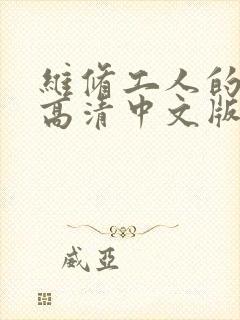 維脩工人的
高清中文版
威亞